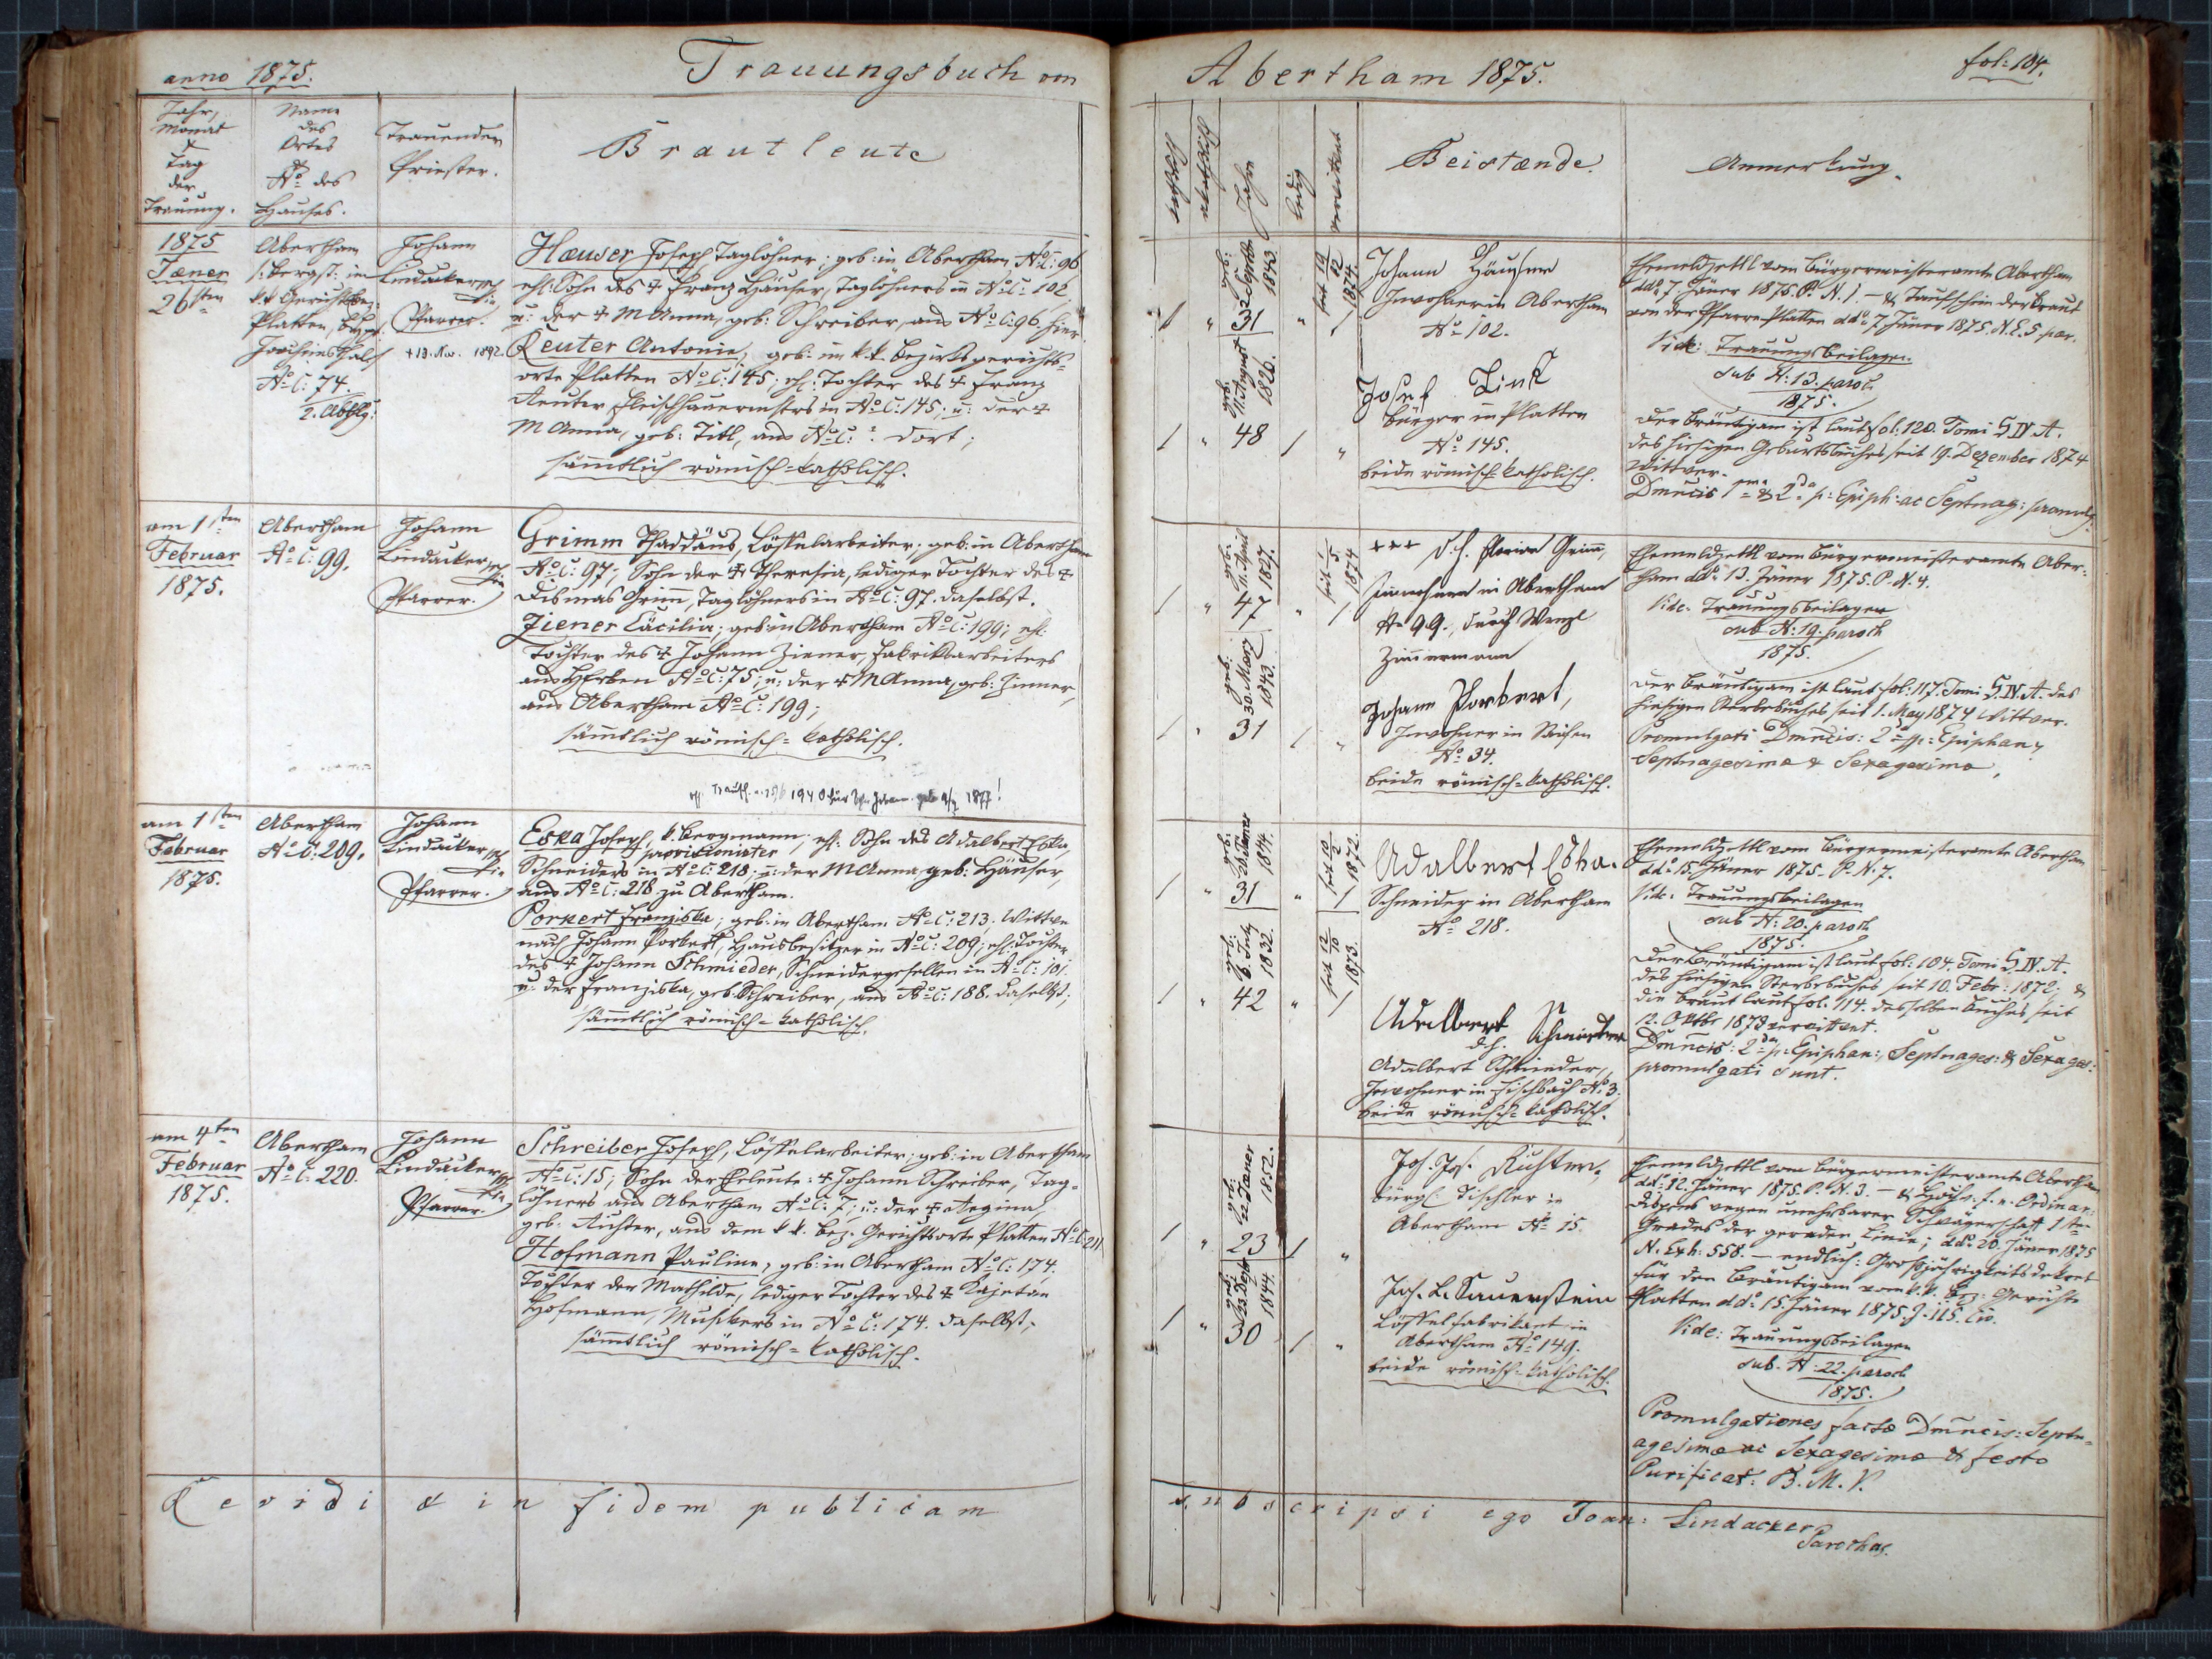 anno 1875.
Trauungsbuch von
Abertham 1875.
fol: 104.
Jahr,
Monat
&
Tag
der
Trauung.
Name
des
Ortes
&
No des
Hauses.
Trauender
Priester.
Brautleute
katholisch
akatholisch
Jahre
ledig
verwittwet
Beistænde.
Anmerkung.
1875
Jæner
26sten
Abertham
k.k. Gerichtsbez:
Platten, Bezh.
Joachimsthal
No C: 74.
2. Abthlg:
Johann
Lindacker
Pfarrer.
+ 13. Nov. 1892.
Hæuser Joseph Taglöhner; geb: in Abertham No C: 96
ehl: Sohn des + Franz Häuser, Taglöhners in No C: 102,
u: der + M Anna, geb: Schreiber, aus No C: 96 hier.
Reuter Antonie, geb: im k.k. Bezirksgerichts-
orte Platten No C: 145; ehl: Tochter des + Franz
Reuter Fleischhauermeisters in No C: 145; u: der +
M Anna, geb: Titl, aus No C: ? dort;
sämmtlich römisch-katholisch.
1 " geb: 2. Septbr 1843. 31 " seit 19/12 1874. 1
1 " geb: 11. August 1826. 48 1 "
Johann Häuser
Inwohner in Abertham
No 102.
Josef Link
Bürger in Platten
No 145.
beide römisch katholisch.
Ehemeldzettl vom Bürgermeisteramte Abertham
ddo 7. Jäner 1875. P. N. 1. – & Taufschein der Braut
von der Pfarre Platten ddo 7. Jäner 1875. N. E. 5. par.
Vide: Trauungsbeilagen
sub N: 13. paroch
1875.
Der Bräutigam ist laut fol: 120. Tomi S IV. A.
des hiesigen Geburtsbuches seit 19. Dezember 1874
Wittwer.
Dmncis 1ma & 2da p: Epiph: ac Septuag: promulg:
am 1sten
Februar
1875.
Abertham
No C: 99.
Johann
Lindacker
Pfarrer.
Grimm Thaddäus, Löffelarbeiter; geb: in Abertham
No C: 97; Sohn der + Theresia, lediger Tochter des +
Dismas Grimm, Taglöhners in No C: 97. daselbst.
Ziener Cäcilia; geb: in Abertham No C: 199; ehl:
Tochter des + Johann Ziener, Fabriksarbeiters
No C: 75; u: der + M Anna, geb: Zinner,
aus Abertham No C: 199;
sämmtlich römisch-katholisch.
1 " geb: 11. April 1827. 47 " seit 1/5 1874 1
1 " geb: 30. März 1843. 31 1 "
+++ d. h. Florian Grimm,
Zimmermann in Abertham
No 99., durch Wenzl
Zimmermann
Johann Porkert,
Inwohner in
No: 34.
beide römisch-katholisch.
Ehemeldzettl vom Bürgermeisteramte Aber-
tham ddo 13. Jäner 1875. P. N. 4.
Vide: Trauungsbeilagen
sub N: 19. paroch
1875.
Der Bräutigam ist laut fol: 117. Tomi S. IV. A. des
hiesigen Sterbebuches seit 1. May 1874 Wittwer.
Promulgati Dmncis: 2da p: Epiphan,
Septuagesima & Sexagesima,
am 1sten
Februar
1875.
Abertham
No C: 209.
Johann
Lindacker
Pfarrer.
1940 1877!
Eska Joseph, k. Bergmann, ehl: Sohn des Adalbert Eska,
provisionister
Schneiders in No C: 218; u: der M Anna, geb: Häuser,
aus No C: 218 zu Abertham.
Porkert Franziska; geb: in Abertham No C: 213, Wittwe
nach Johann Porkert, Hausbesitzer in No C: 209; ehl: Tochter
des + Johann Schmieder, Schneidergesellen in No C: 101.
u: der Franziska, geb: Schreiber, aus No C: 188. daselbst;
sämmtlich römisch-katholisch.
1 " geb: 26. Jäner 1844. 31 " seit 10/2 1872. 1
1 " geb: 6. July 1832. 42 " seit 12/10 1873. 1
Adalbert Eska.
Schneider in Abertham
No 218.
Adalbert Schmieder
d. h.
Adalbert Schmieder,
Inwohner in Fischbach No: 3.
beide römisch-katholisch.
Ehemeldzettl vom Bürgermeisteramte Abertham
ddo 15. Jäner 1875. P. N. 7.
Vide: Trauungsbeilagen
sub N: 20. paroch
1875.
Der Bräutigam ist laut fol: 104. Tomi S. IV. A.
des hiesigen Sterbebuches seit 10. Febr: 1872; &
die Braut laut fol: 114. desselben Buches seit
12. Oktbr 1873 verwittwet.
Dmncis: 2da p: Epiphan: Septuages: & Sexages:
promulgati sunt.
am 4ten
Februar
1875.
Abertham
No C: 220.
Johann
Lindacker
Pfarrer.
Schreiber Joseph, Löffelarbeiter; geb: in Abertham
No C: 15; Sohn der Eheleute: + Johann Schreiber, Tag-
löhners aus Abertham No C: 7; u: der + Regina,
geb: Richter, aus dem k.k. Bez: Gerichtsorte Platten No C: 211
Hofmann Pauline, geb: in Abertham No C: 174.
Tochter der Mathilde, lediger Tochter des + Kajetan
Hofmann, Musikers in No C: 174. daselbst;
sämmtlich römisch-katholisch.
1 " geb: 22 Jæner 1852. 23 1 "
1 " geb: 23. Dezbr 1844. 30 1 "
Joh. Jos. Richter,
bürgl: Tischler in
Abertham No 15.
Jos. L. Sauerstein
Löffelfabrikant in
Abertham No 149.
beide römisch-katholisch.
Ehemeldzettl vom Bürgermeisteramte Abertham
ddo 12. Jäner 1875. P. N. 3. – & Hochw. f. e. Ordinar:
Dispens wegen unehrbarer Schwägerschaft 1ten
Grades der geraden Linie; ddo 20. Jäner 1875
N. Exh: 558. – endlich: Großjährigkeitsdekret
für den Bräutigam vom k.k. Bez: Gerichte
Platten ddo 15. Jäner 1875. J. 115. Civ.
Vide: Trauungsbeilagen
sub. N: 22. paroch
1875.
Promulgationes factæ Dmncis: Septu-
agesima ac Sexagesima & festo
Purificat: B. M. V.
Revidi & in fidem publicam
subscripsi ego Joan: Lindacker
Parochus.